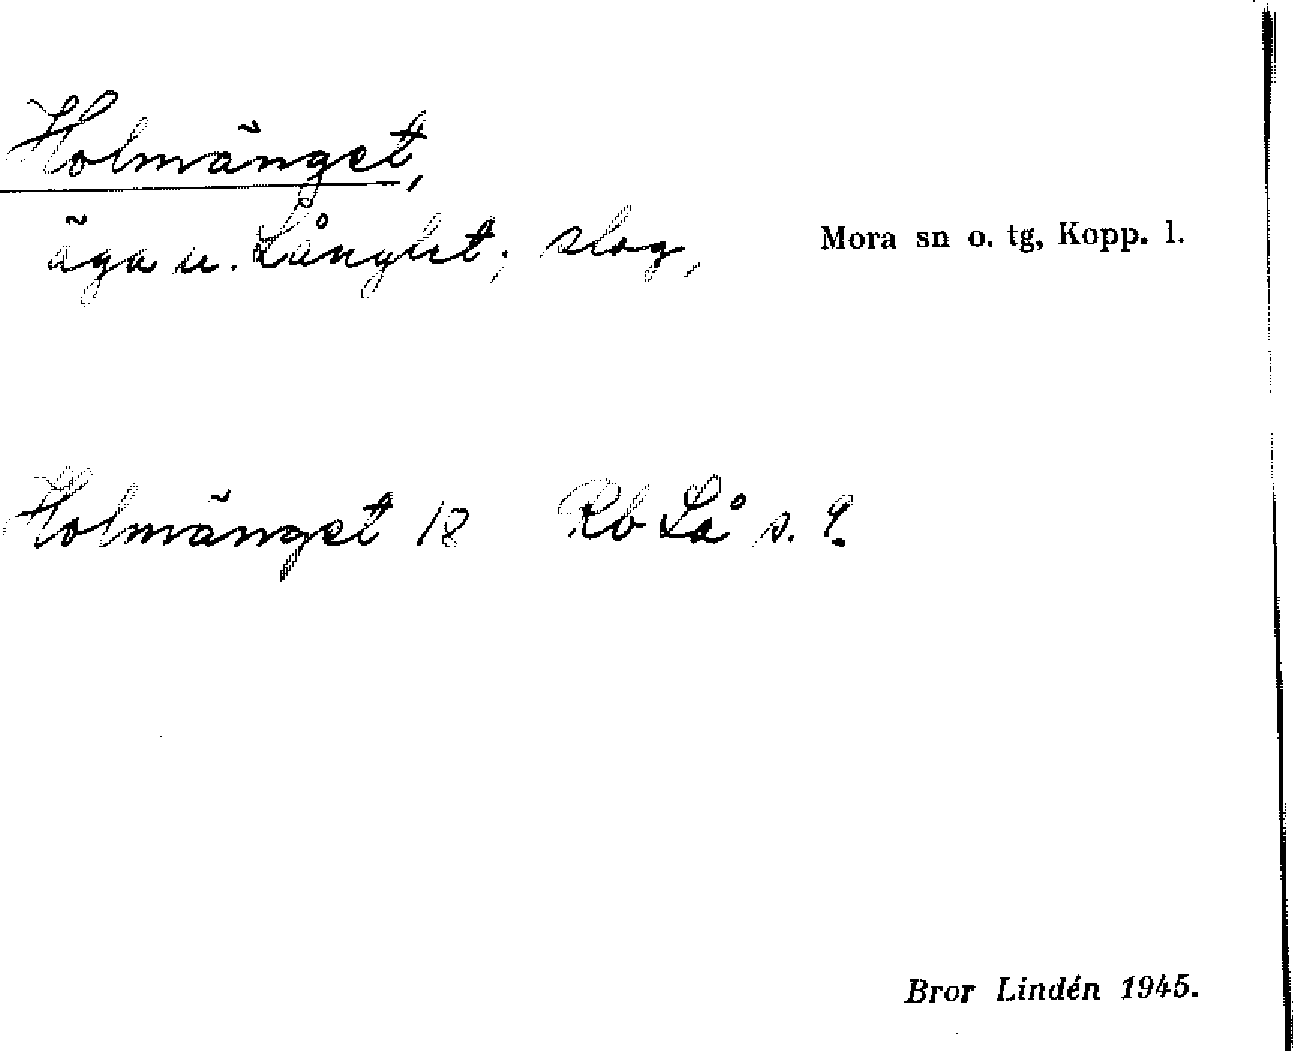 Holmänget,
äga u. Långlet; slog,
Mora sn o. tg, Kopp. l.
Holmänget 18 Rb Lå s. 9.
Bror Lindén 1945.